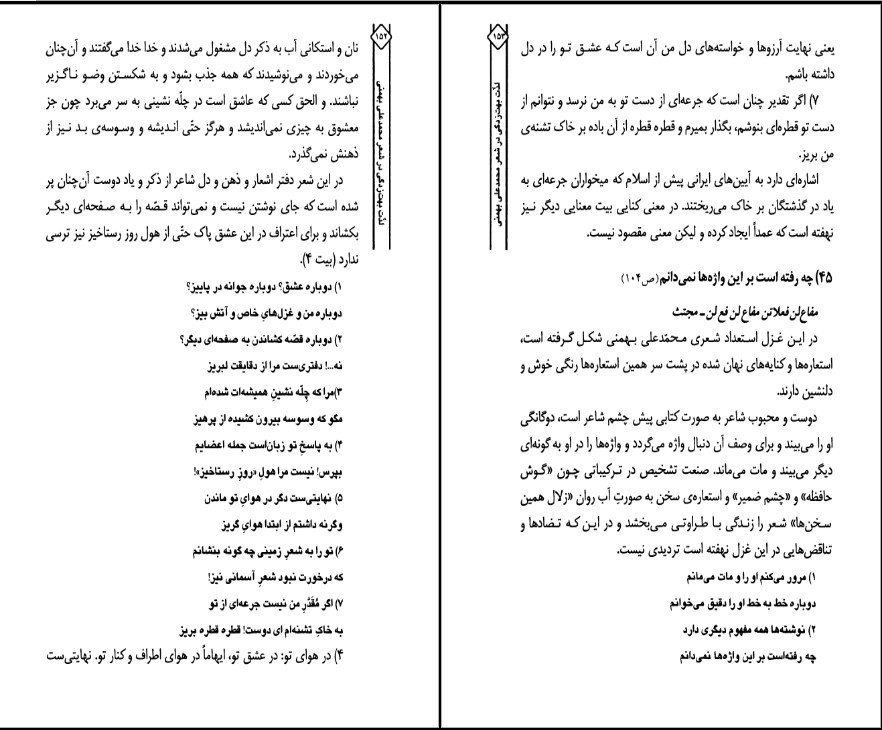 ۱۵۲
لذّت بهت‌زدگی در شعر محمدعلی بهمنی
نان و استکانی آب به ذکر دل مشغول می‌شدند و خدا خدا می‌گفتند و آن‌چنان
می‌خوردند و می‌نوشیدند که همه جذب بشود و به شکستن وضو ناگزیر
نباشند. و الحق کسی که عاشق است در چلّه نشینی به سر می‌برد چون جز
معشوق به چیزی نمی‌اندیشد و هرگز حتّی اندیشه و وسوسه‌ی بد نیز از
ذهنش نمی‌گذرد.
در این شعر دفتر اشعار و ذهن و دل شاعر از ذکر و یاد دوست آن‌چنان پر
شده است که جای نوشتن نیست و نمی‌تواند قصّه را به صفحه‌ای دیگر
بکشاند و برای اعتراف در این عشق پاک حتّی از هول روز رستاخیز نیز ترسی
ندارد (بیت ۴).
۱) دوباره عشق؟ دوباره جوانه در پاییز؟
دوباره من و غزل‌هایِ خاص و آتش بیز؟
۲) دوباره قصّه کشاندن به صفحه‌ای دیگر؟
نه...! دفتری‌ست مرا از دقایقت لبریز
۳)مرا که چلّه نشینِ همیشه‌ات شده‌ام
مگو که وسوسه بیرون کشیده از پرهیز
۴) به پاسخِ تو زبان‌است جمله اعضایم
بپرس! نیست مرا هولِ «روزِ رستاخیز»!
۵) نهایتی‌ست دگر در هوایِ تو ماندن
وگرنه داشتم از ابتدا هوایِ گریز
۶) تو را به شعرِ زمینی چه گونه بنشانم
که درخورت نبود شعرِ آسمانی نیز!
۷) اگر مُقَدَّرِ من نیست جرعه‌ای از تو
به خاکِ تشنه‌ام ای دوست! قطره قطره بریز
۴) در هوای تو: در عشق تو، ایهاماً در هوای اطراف و کنار تو. نهایتی‌ست
۱۵۳
لذّت بهت‌زدگی در شعر محمدعلی بهمنی
یعنی نهایت آرزوها و خواسته‌های دل من آن است که عشق تو را در دل
داشته باشم.
۷) اگر تقدیر چنان است که جرعه‌ای از دست تو به من نرسد و نتوانم از
دست تو قطره‌ای بنوشم، بگذار بمیرم و قطره قطره از آن باده بر خاک تشنه‌ی
من بریز.
اشاره‌ای دارد به آیین‌های ایرانی پیش از اسلام که میخواران جرعه‌ای به
یاد در گذشتگان بر خاک می‌ریختند. در معنی کنایی بیت معنایی دیگر نیز
نهفته است که عمداً ایجاد کرده و لیکن معنی مقصود نیست.
۴۵) چه رفته است بر این واژه‌ها نمی‌دانم (ص۱۰۴)
مفاع‌لن فعلاتن مفاع لن فع لن ـ مجتث
در این غزل استعداد شعری محمّدعلی بهمنی شکل گرفته است،
استعاره‌ها و کنایه‌های نهان شده در پشت سر همین استعاره‌ها رنگی خوش و
دلنشین دارند.
دوست و محبوب شاعر به صورت کتابی پیش چشم شاعر است، دوگانگی
او را می‌بیند و برای وصف آن دنبال واژه می‌گردد و واژه‌ها را در او به گونه‌ای
دیگر می‌بیند و مات می‌ماند. صنعت تشخیص در ترکیباتی چون «گوش
حافظه» و «چشم ضمیر» و استعاره‌ی سخن به صورتِ آب روان «زلال همین
سخن‌ها» شعر را زندگی با طراوتی می‌بخشد و در این که تضادها و
تناقض‌هایی در این غزل نهفته است تردیدی نیست.
۱) مرور می‌کنم او را و مات می‌مانم
دوباره خط به خط او را دقیق می‌خوانم
۲) نوشته‌ها همه مفهوم دیگری دارد
چه رفته‌است بر این واژه‌ها نمی‌دانم